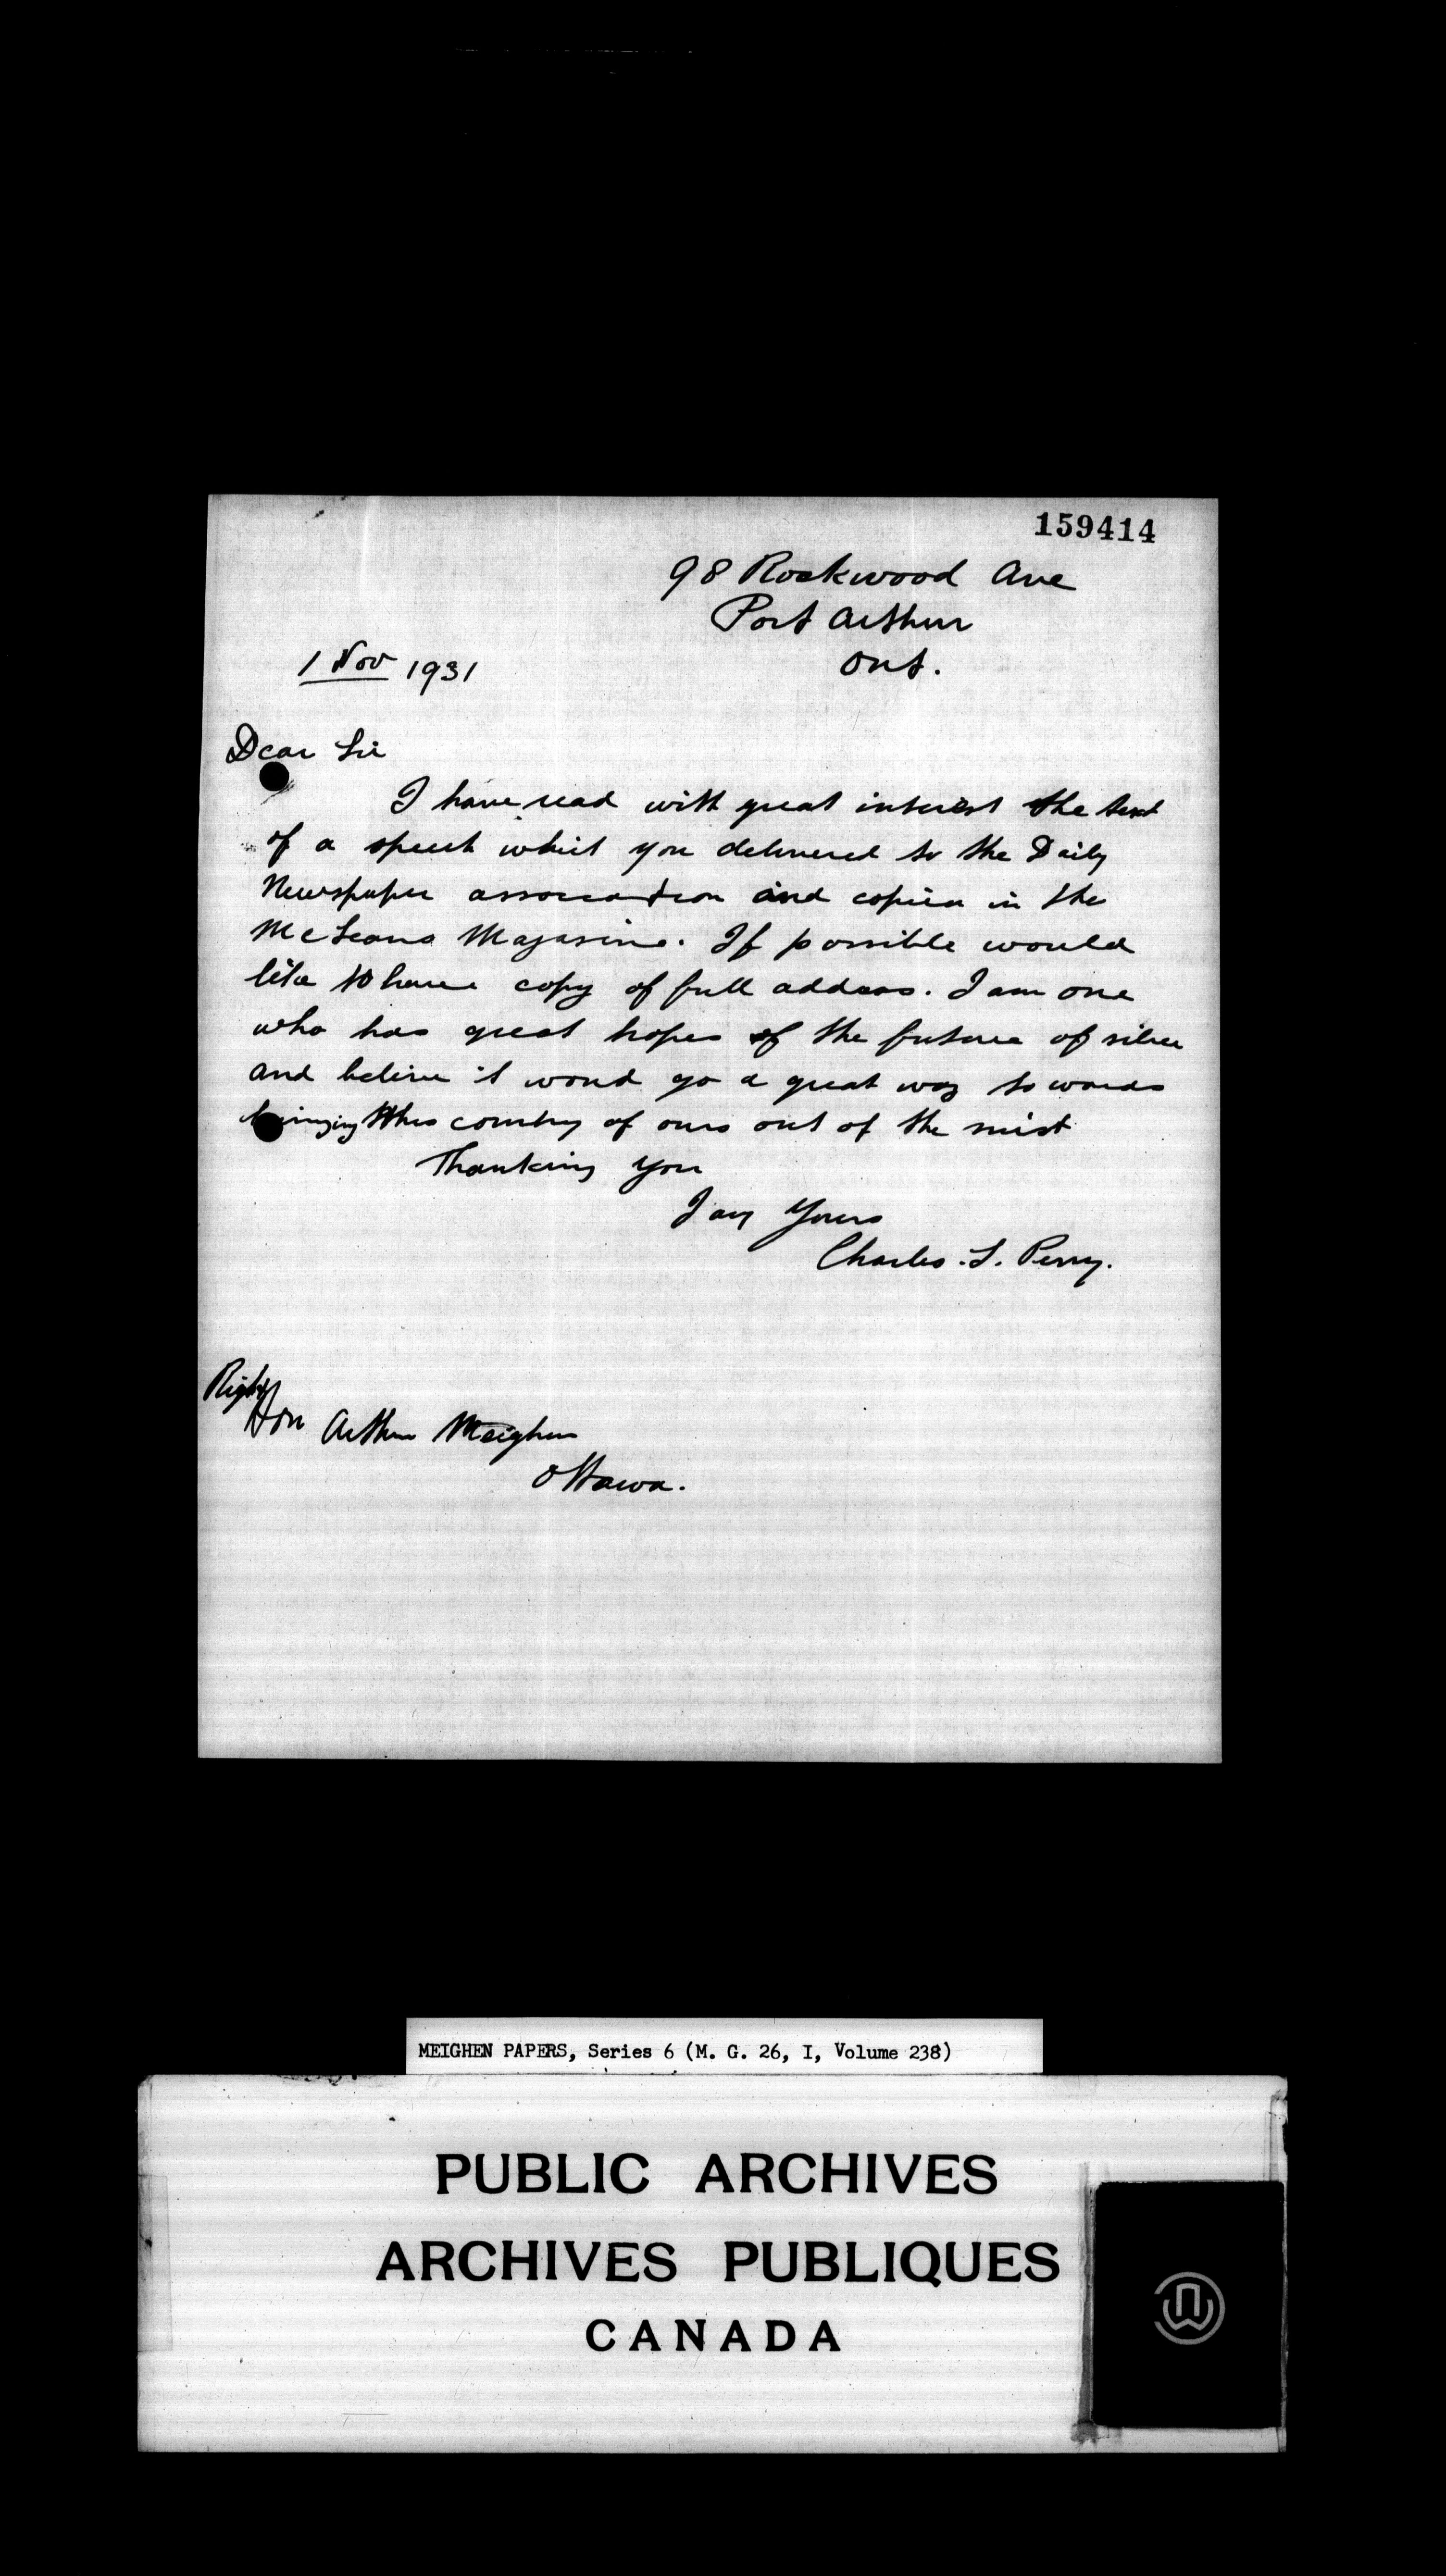 159414
98 Rockwood Ave
Port Arthur
Ont.
1 Nov 1931
Dear Sir
I have read with great interest the text
of a speech which you delivered to the Daily
Newspaper association and copied in the
McLeans Magasine. If possible would
like to have copy of full address. I am one
who has great hopes of the future of silver
and believe it would go a great way towards
bringing this country of ours out of the mist
Thanking you
I am Yours
Charles. S. Perry.
Right
Hon Arthur Meighen
Ottawa.
MEIGHEN PAPERS, Series 6 (M. G. 26, I, Volume 238)
PUBLIC ARCHIVES
ARCHIVES PUBLIQUES
CANADA